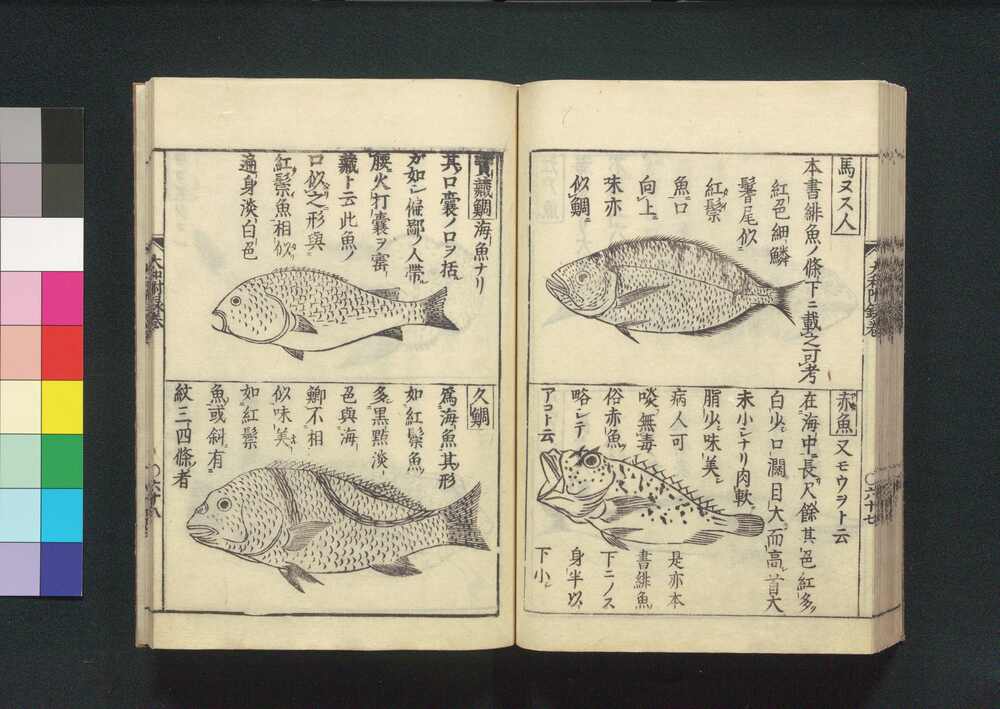 馬ヌス人
本書緋魚ノ條下ニ載之可考
紅色細鱗
鬐尾似
紅鬃
魚口
向上
味亦
似鯛
赤魚又モウヲト云
在海中長尺餘其色紅多
白少口濶目大而高首大
末小シナリ肉軟
脂少味美
病人可
啖無毒
俗赤魚
略シテ
アコト云
是亦本
書緋魚
下ニノス
身半以
下小
大和附録巻
〇六十七
寳藏鯛海魚ナリ
其口嚢ノ口ヲ括
カ如シ偏鄙ノ人帯
腰火打嚢ヲ寳
藏ト云此魚ノ
口似之形與
紅鬃魚相似
遍身淡白色
久鯛
爲海魚其形
如紅鬃魚
多黒點淡
色與海
鯽不相
似味美
如紅鬃
魚或斜有
紋三四條者
大和附録巻
〇六十八